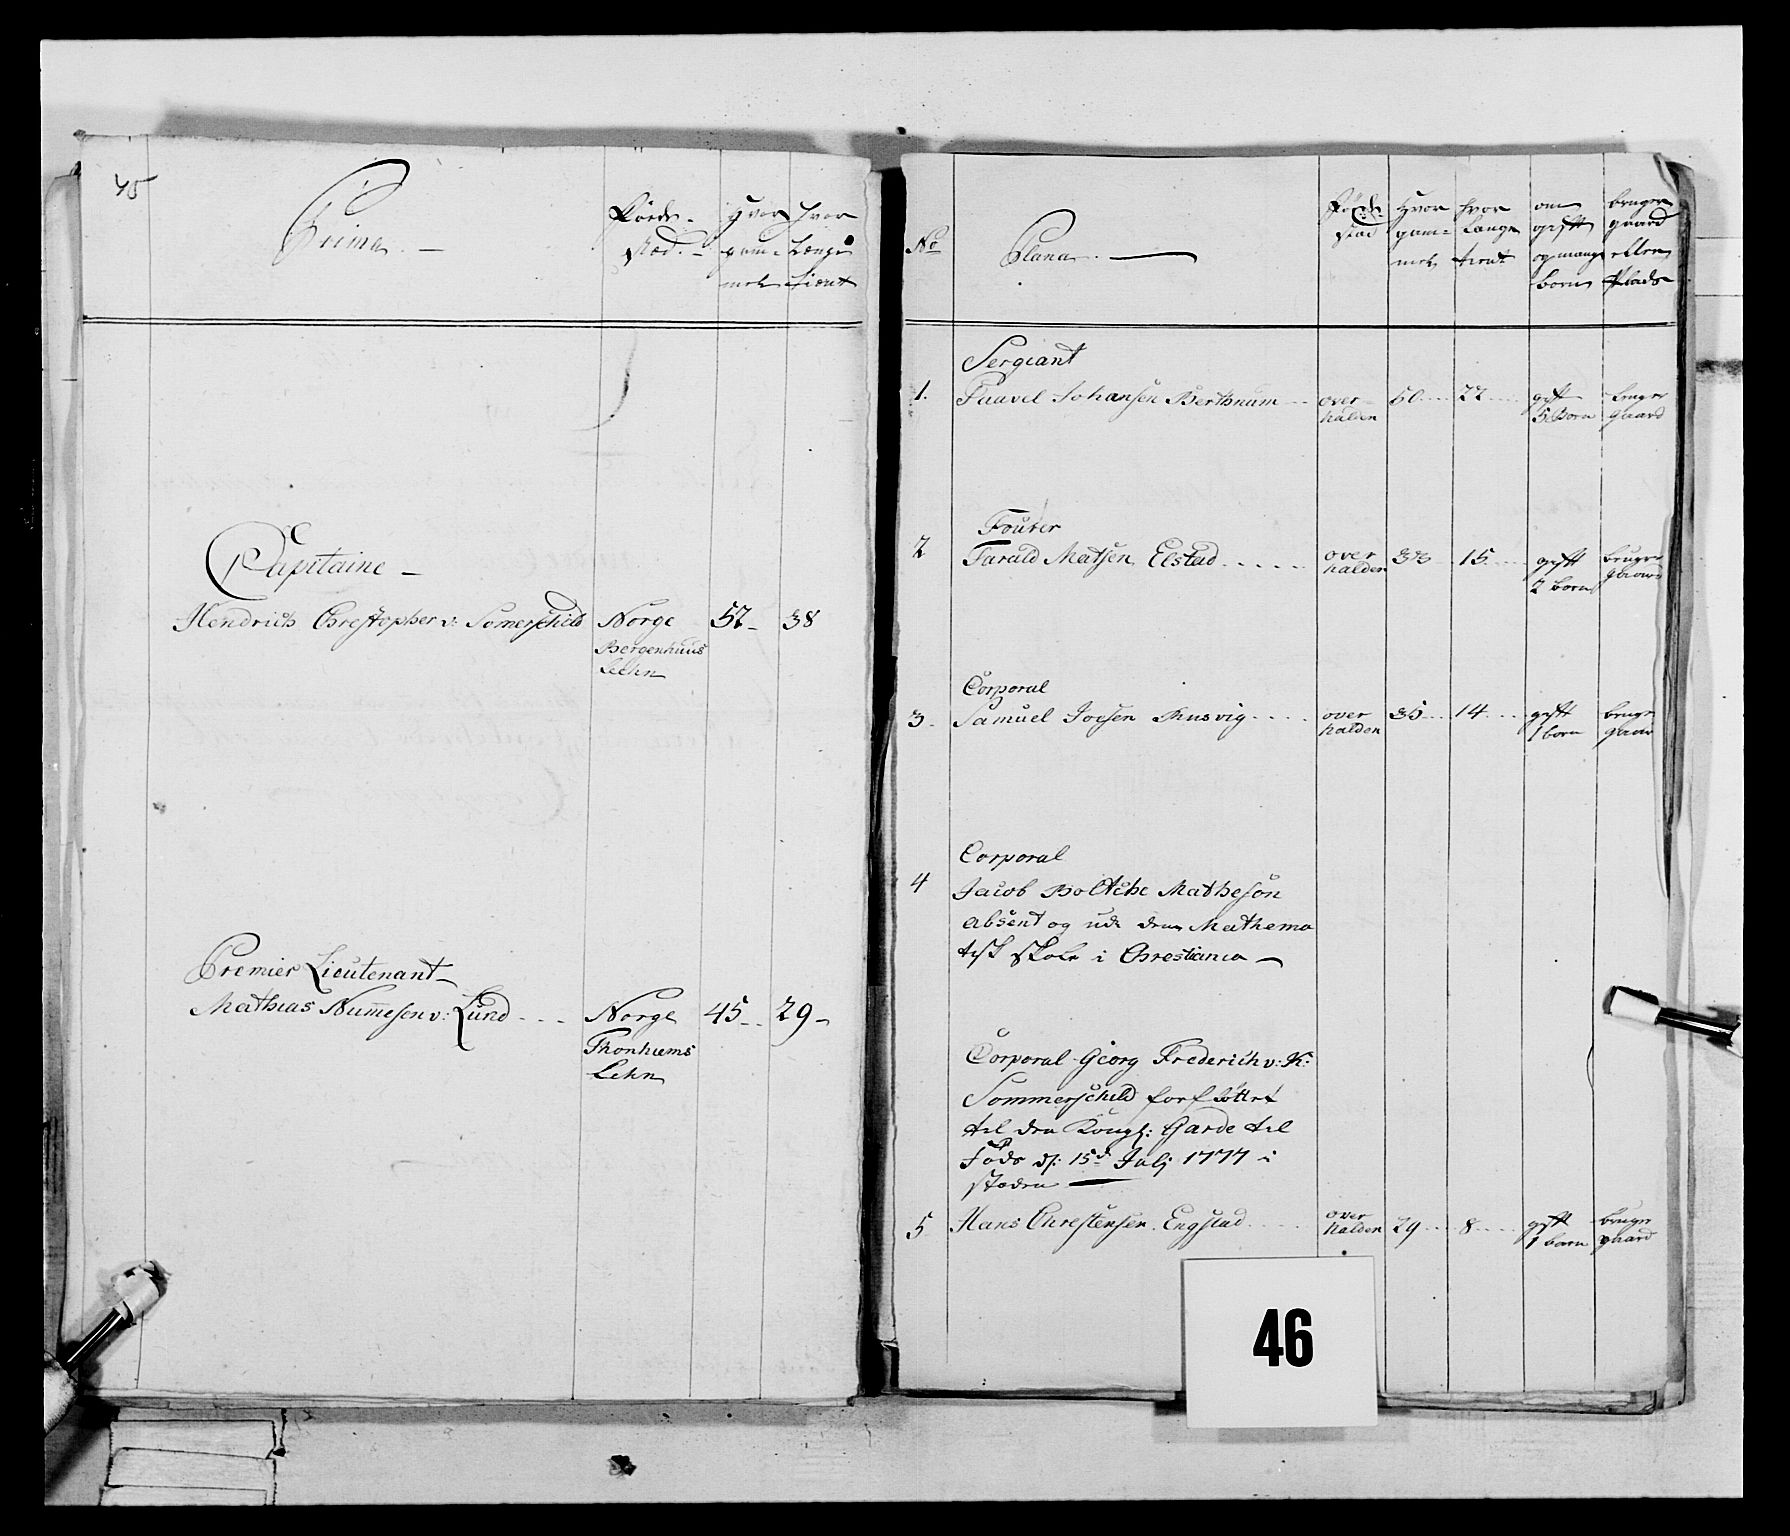 45
Prima. —
Föede-
stæd. -
Hvor
gam-
mel
hvor
Længe
tient
Capitaine —
Hendrich Chrestopher v: Somerschild
Norge
Bergenhuus
Leehn
57
38
Premier Lieutenant
Mathias Num̅eson v: Lund
Norge
Thonhiems
Lehn
45
29
No
Plana. —
Föede
stæd
Hvor
gam=
mel
hvor
Længe
tient
om
gift
og mange
born
bruger
gaard
eller
Plads
Sergiant
1. Paavel Johansen Bertnum
over=
halden
50
22
gift
5 Born
bruger
gaard
Fourer
2 Tarald Matsen Elstad
over
halden
15
gift
2 born
bruger
gaard
Corporal
3. Samuel Joesen Rusvig
over
halden
35
14
gift
1 born
bruger
gaar
Corporal
4 Jacob Matheson
absent og ude den Mathema
tisk skole i Chrestiania —
Corporal Georg Frederich v: K:
Sommerschild forflöttet
til den Kongl: Garde til
Fods d: 15d Julj 1777 i
stæden —
5 Hans Chrestensen Engstad
over
halden
29
8
gift
1 born
bruger
gaard
46